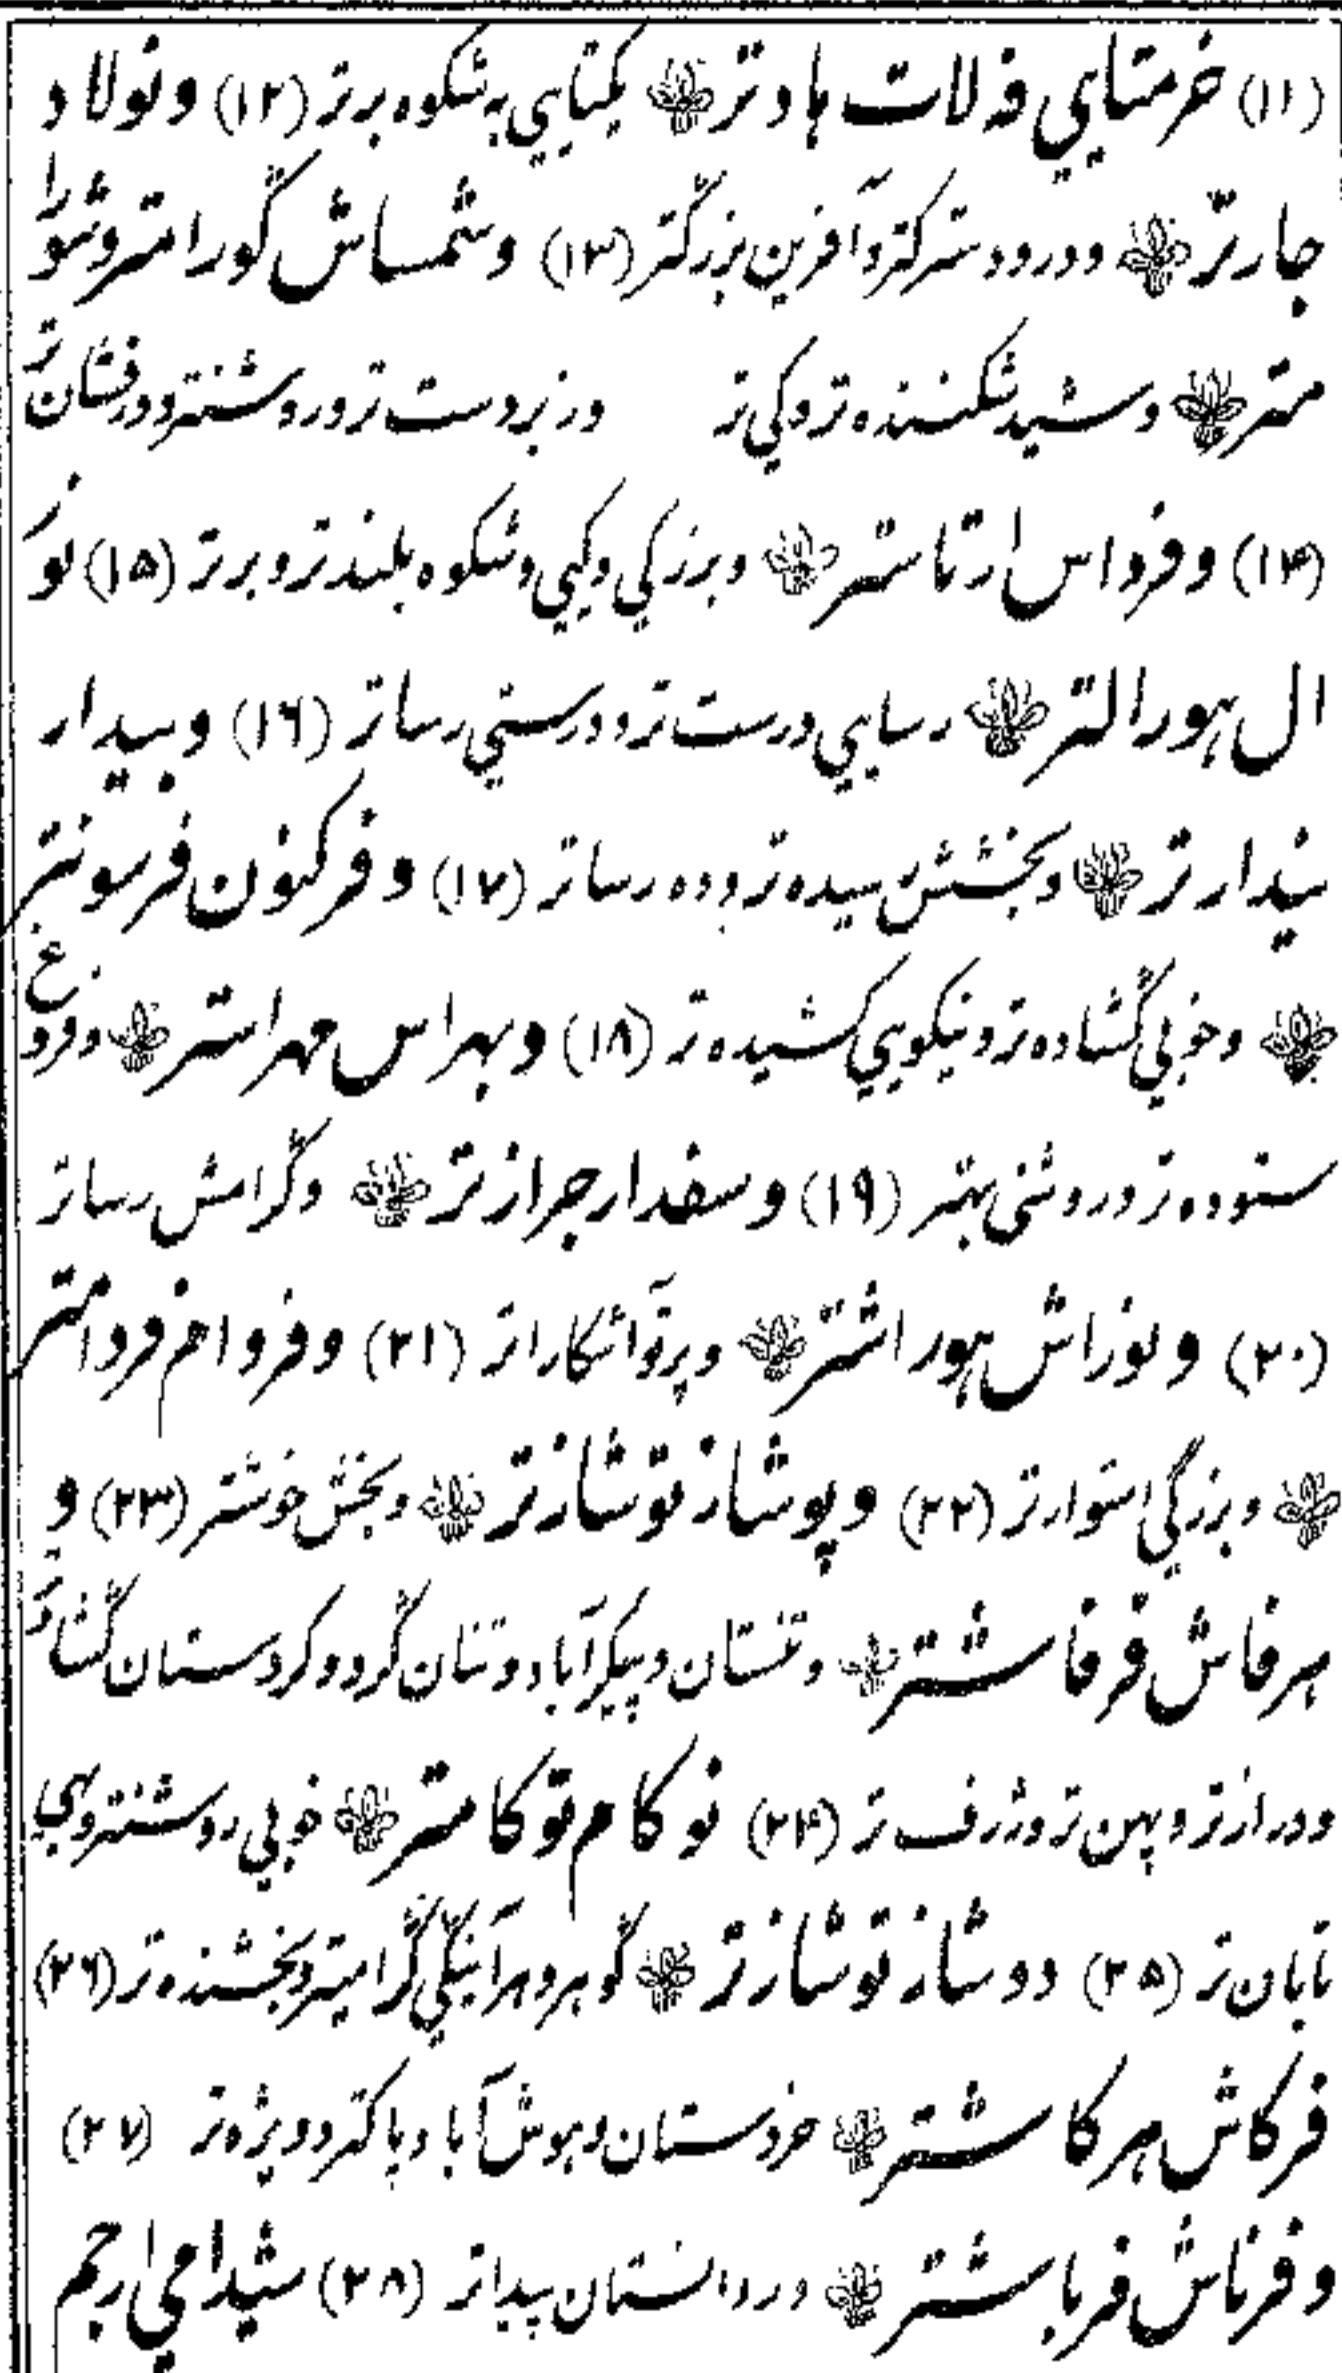 (۱۱) خرمتایي فه لات هاد تر یکتایي به شکوه برتر (۱۲) و نولاد
جارتر و درود سترگتر و آفرین بزرگتر (۱۳) و شمساش گورا متر و شور را
متر و شید شکننده تر و کي تر و زبردست تر و روشنتر و درفشان تر
(۱۴) و فرداس ارتاستر و بزرگي و کیي و شکوه بلندتر و برتر (۱۵) نور
ال هورالتر رسایي درست تر و درستي رساتر (۱۶) و بیدار
نیدارتر و بخشش رسیده تر و ده رساتر (۱۷) و فرکنون فرسونتر
و خوبي گشاده تر و نیکویي کشیده تر (۱۸) و بهراس مهراستر و فروغ
ستوده تر و روشني بهتر (۱۹) و سفدار جرازتر و گرامش رساتر
(۲۰) و نوزاش هوراشتر و پرتو آشکاراتر (۲۱) و فروام فردامتر
و بزرگي استوارتر (۲۲) و پوشاز توشازتر و بخش خوشتر (۲۳) و
هرفاش فرفاشتر و تنستان و پیکرآباد و تنان گرد و کردستان گشادتر
و درازتر و پهن تر و ژرف تر (۲۴) نوکام توکامتر خوبي روشنتر و بهي
تابان تر (۲۵) دوشاز توشازتر گوهر و هرآینگي گرامیتر و بخشنده تر (۲۶)
فرکاش هرکاشتر خردستان و هوش آباد پاکتر و ویژه تر (۲۷)
و فرناش فرباشتر و روانستان پیداتر (۲۸) شیدامي ارجم